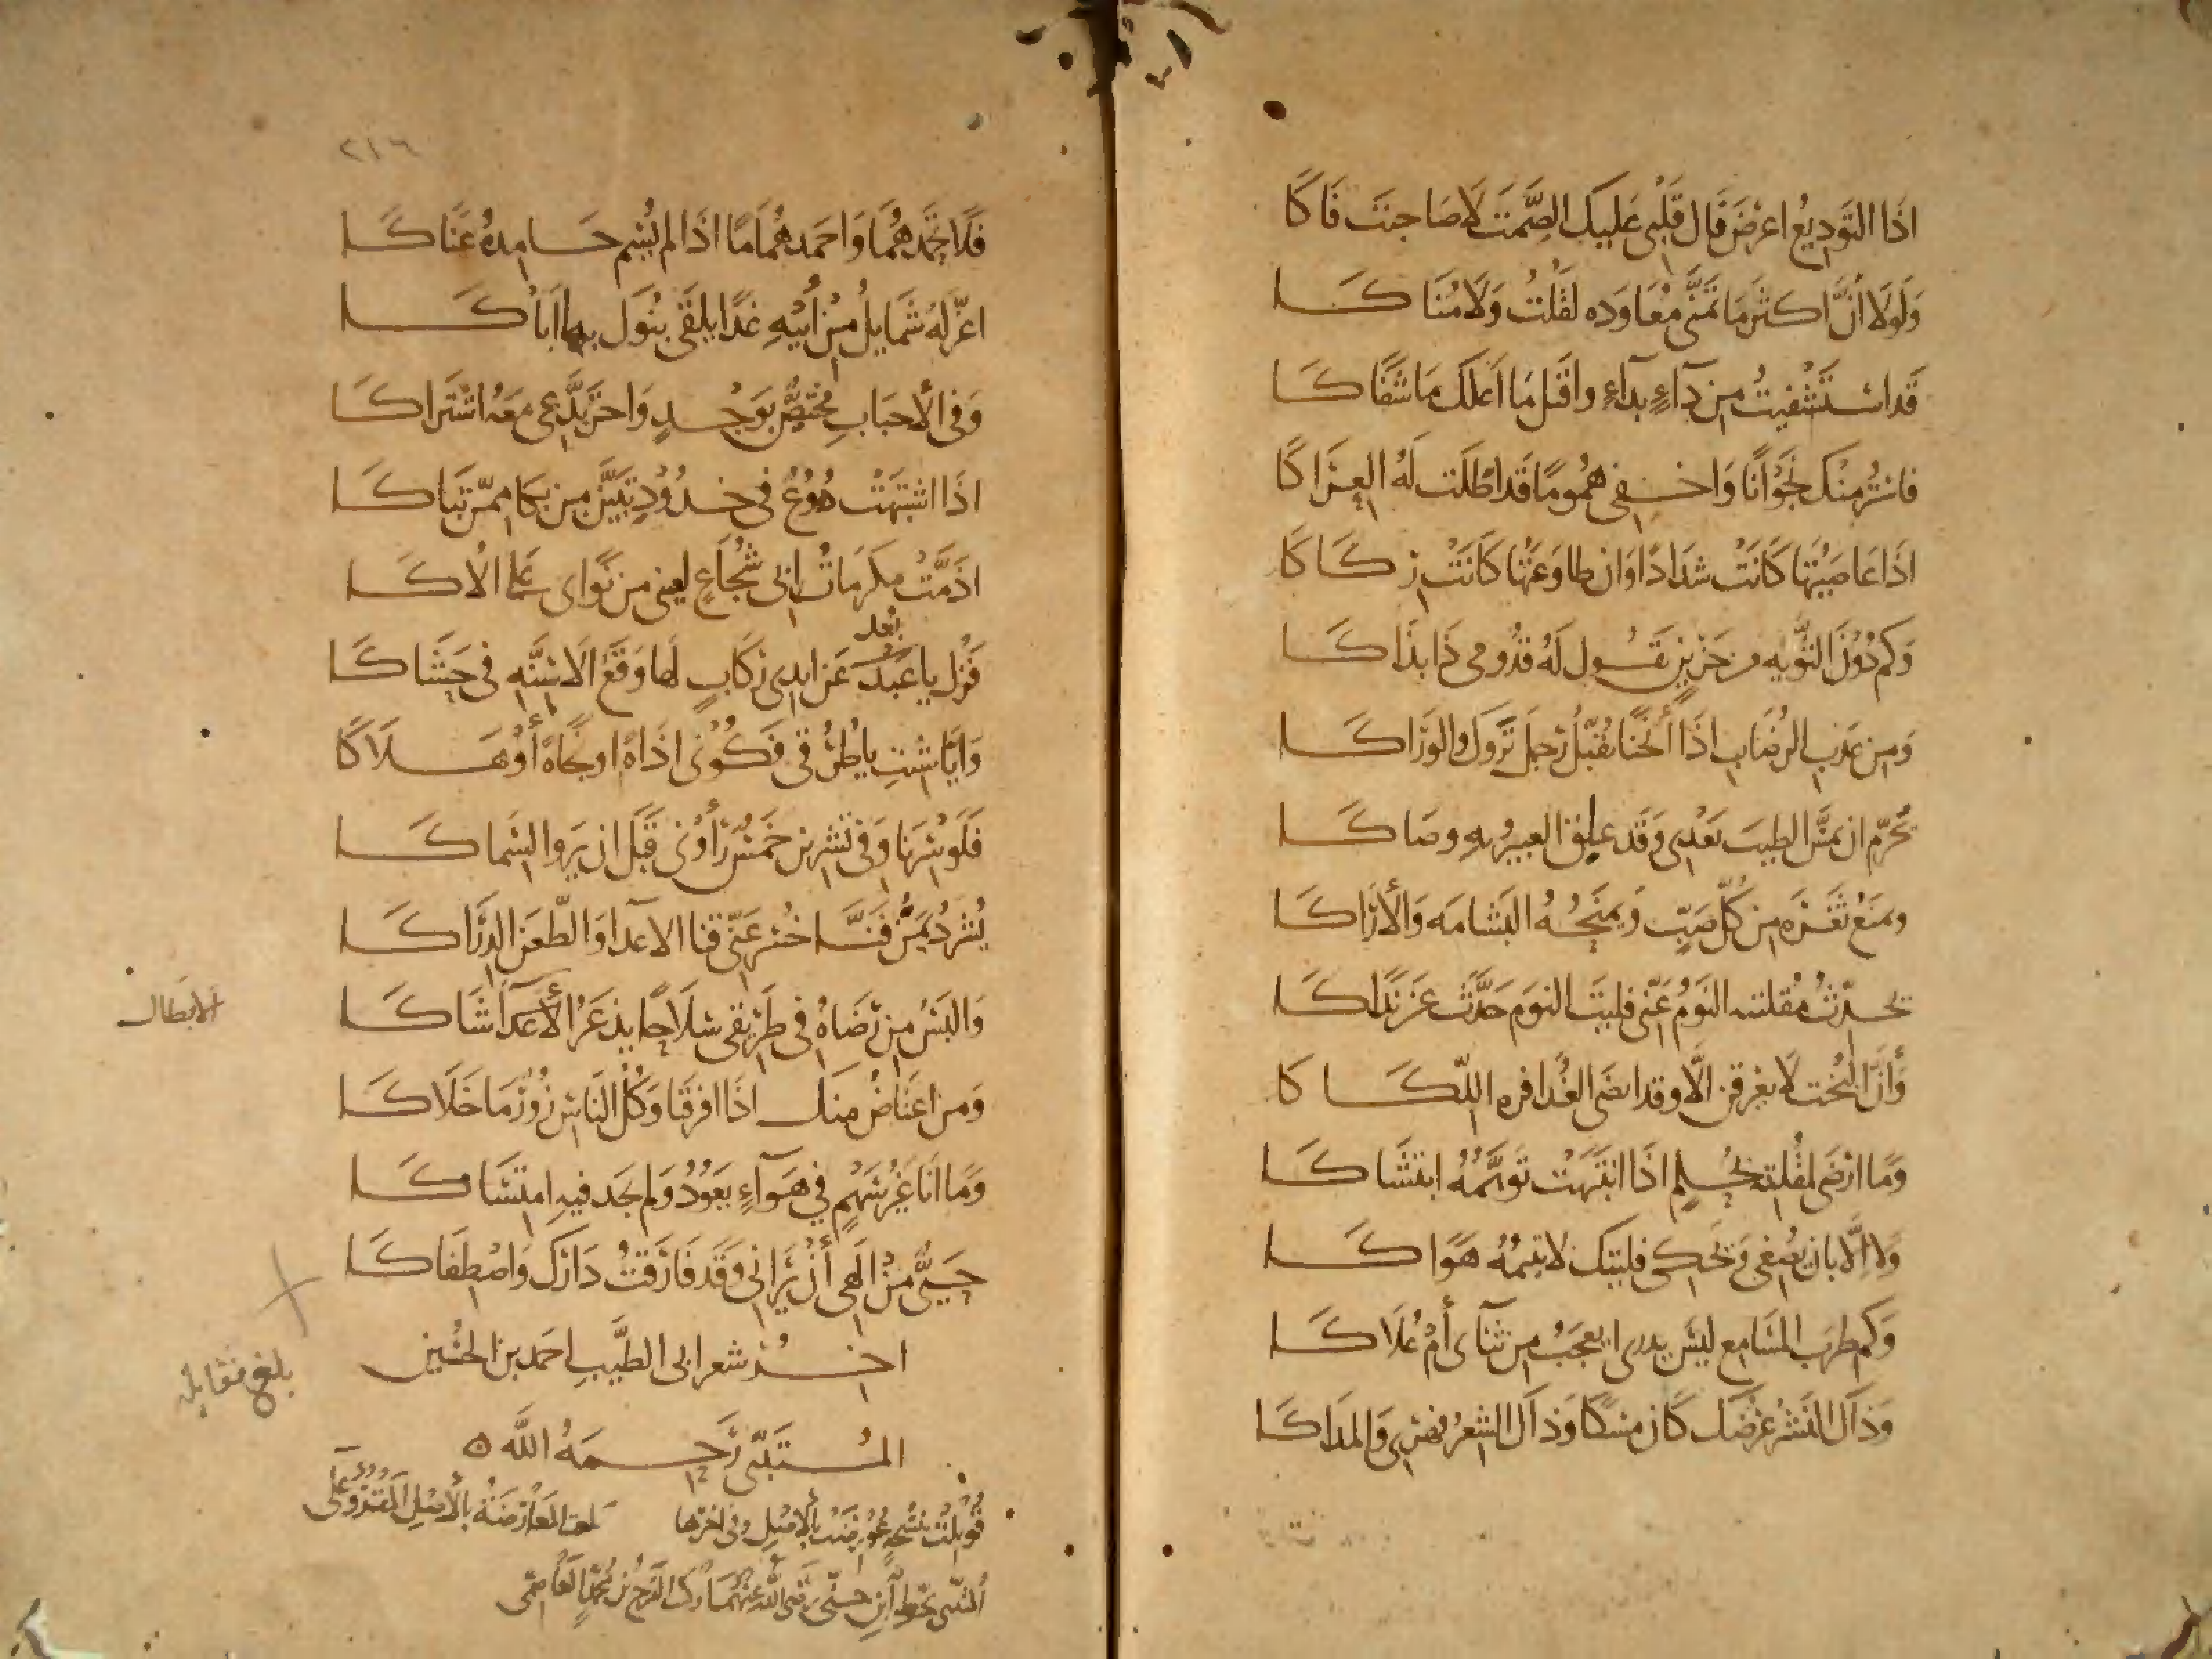 اذا التوديع اعرض قال قلبي عليك الصمت لا صاحبت فاكا
ولولا أن اكثر ما تمنى معاوده لقلت ولا مناكا
قد استشفيت من داء بداء واقتل ما اعلك ما شفاكا
فاستر منك نجوانا واخفى هموما قد اطلت له العراكا
اذا عاصيتها كانت شدادا وان طاوعتها كانت ركاكا
وكم دون الثويه من حزين يقول له قدومي ذا بذاكا
ومن عذب الرضاب اذا أنخنا يقبل رحل تروك والوراكا
يحرم ان يمس الطيب بعدي وقد علق العبير به وصاكا
ويمنع ثغره من كل صب ويمنحه البشامه والأراكا
يحدث مقلتيه النوم عني فليت النوم حدث عن نداكا
وأن البخت لا يعرقن الا وقد انضى العذافره اللكاكا
وما ارضى لمقلته بحلم اذا انتبهت توهمه ابتشاكا
ولا الا بان يصغى واحكى فليتك لا يتيمه هواكا
وكم طرب المسامع ليس يدرى ايعجب من ثنائى أم علاكا
وذاك النشر عرضك كان مسكا وذاك الشعر فهري والمداكا
٢١٦
فلا تحمدهما واحمد هماما اذا لم يسم حامده عناكا
اغر له شمايل من أبيه غدا يلقى بنوك بها اباكا
وفى الأحباب مختص بوجد واخر يدعى معه اشتراكا
اذا اشتبهت دموع فى خدود تبين من بكا ممن تباكا
اذمت مكرمات ابى شجاع لعينى من نواى على الاكا
بعد
فزل يا عن ايدى ركاب لها وقع الاسنه فى حشاكا
وايا شئت يا طرقى فكونى اذاة او نجاة أو هلاكا
فلو سرنا وفى تشرين خمس رأونى قبل ان يروا السماكا
يشرد يمن فناخسر عنى قنا الاعدا والطعن الدراكا
والبس من رضاه فى طريقى سلاحا يذعر الأعدا شاكا
الابطال
ومن اعتاض منك اذا افرقنا وكل الناس زور ما خلاكا
وما انا غير سهم في هواء يعود ولم يجد فيه امتساكا
حيى من الهي أن يرانى وقد فارقت دارك واصطفاكا
اخر شعر ابى الطيب احمد بن الحسين
بلغ مقابله
المتنبى رحمه الله
قوبلت بنسخة عورضت بالأصل وفى اخرها
بلغت المعارضة بالأصل المقروء على
المتنبى بخط ابن جنى رضى الله عنهما وكتب بن محمد القاضى